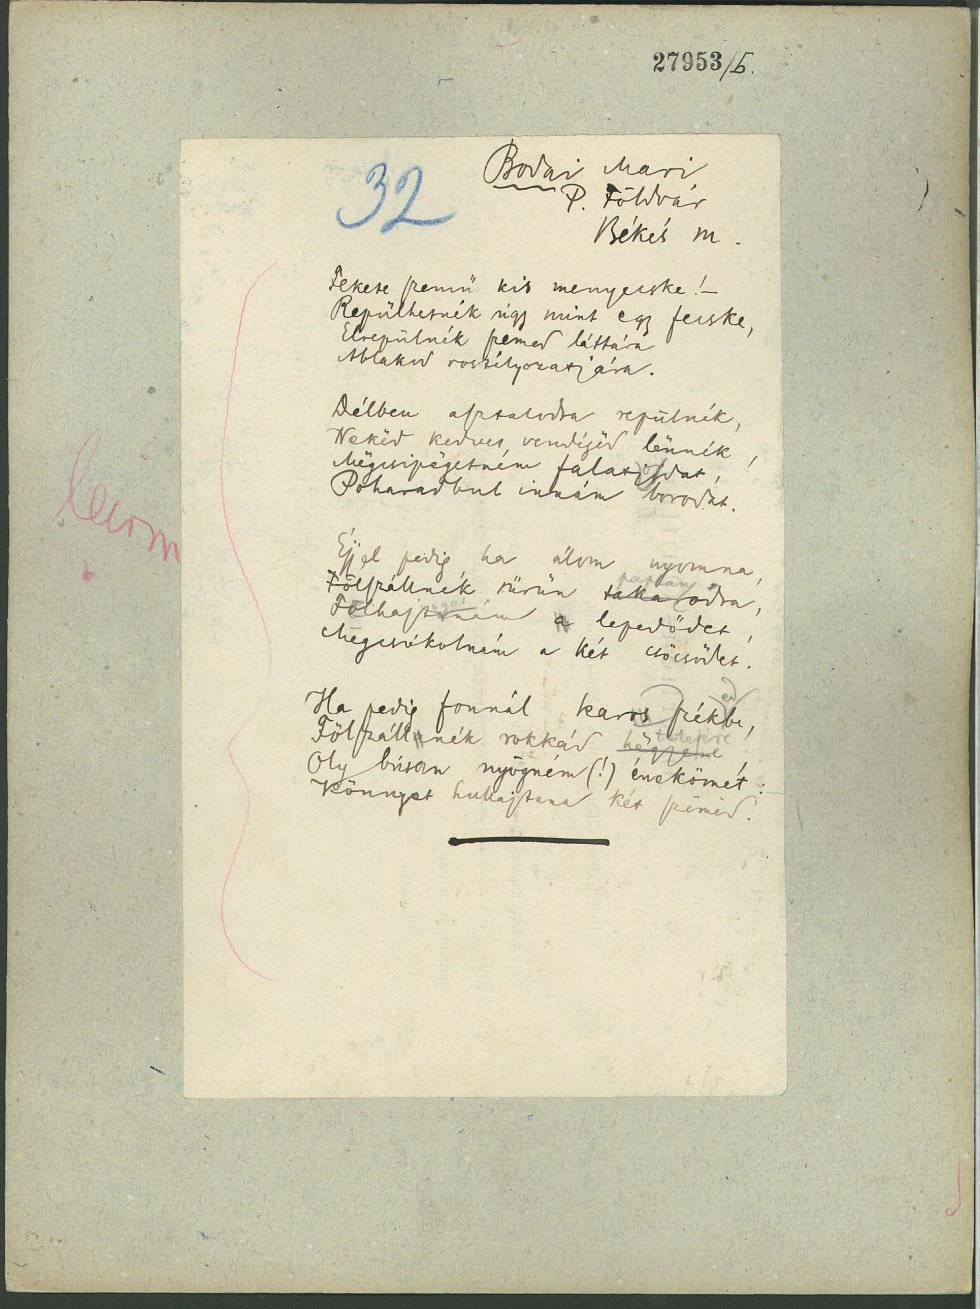 27953/b.
32
Bodai Mari
P. Földvár
Békés m.
Fekete szemű kis menyecske! –
Repülhetnék úgy mint egy fecske,
Elrepülnék szemed láttára
Ablakod rostélyozatjára.
Délben asztalodra repülnék,
Nekëd kedves vendégëd lënnék,
Mëgcsipëgetném falatjodat,
Poharadbul innám borodat.
Éjjel pedig ha álom nyomna,
paplany
Fölszállnék sürün taka rodra,
Fölhajtanám a lepedődet,
Mëgcsókolnám a két csöcsödet.
Ha pedig fonnál karos székbe,
tetejére
Fölszállanék rokkád hëgyere,
Oly búsan nyögném (!) énekömet
Könnyet hullajtana két szëmëd.